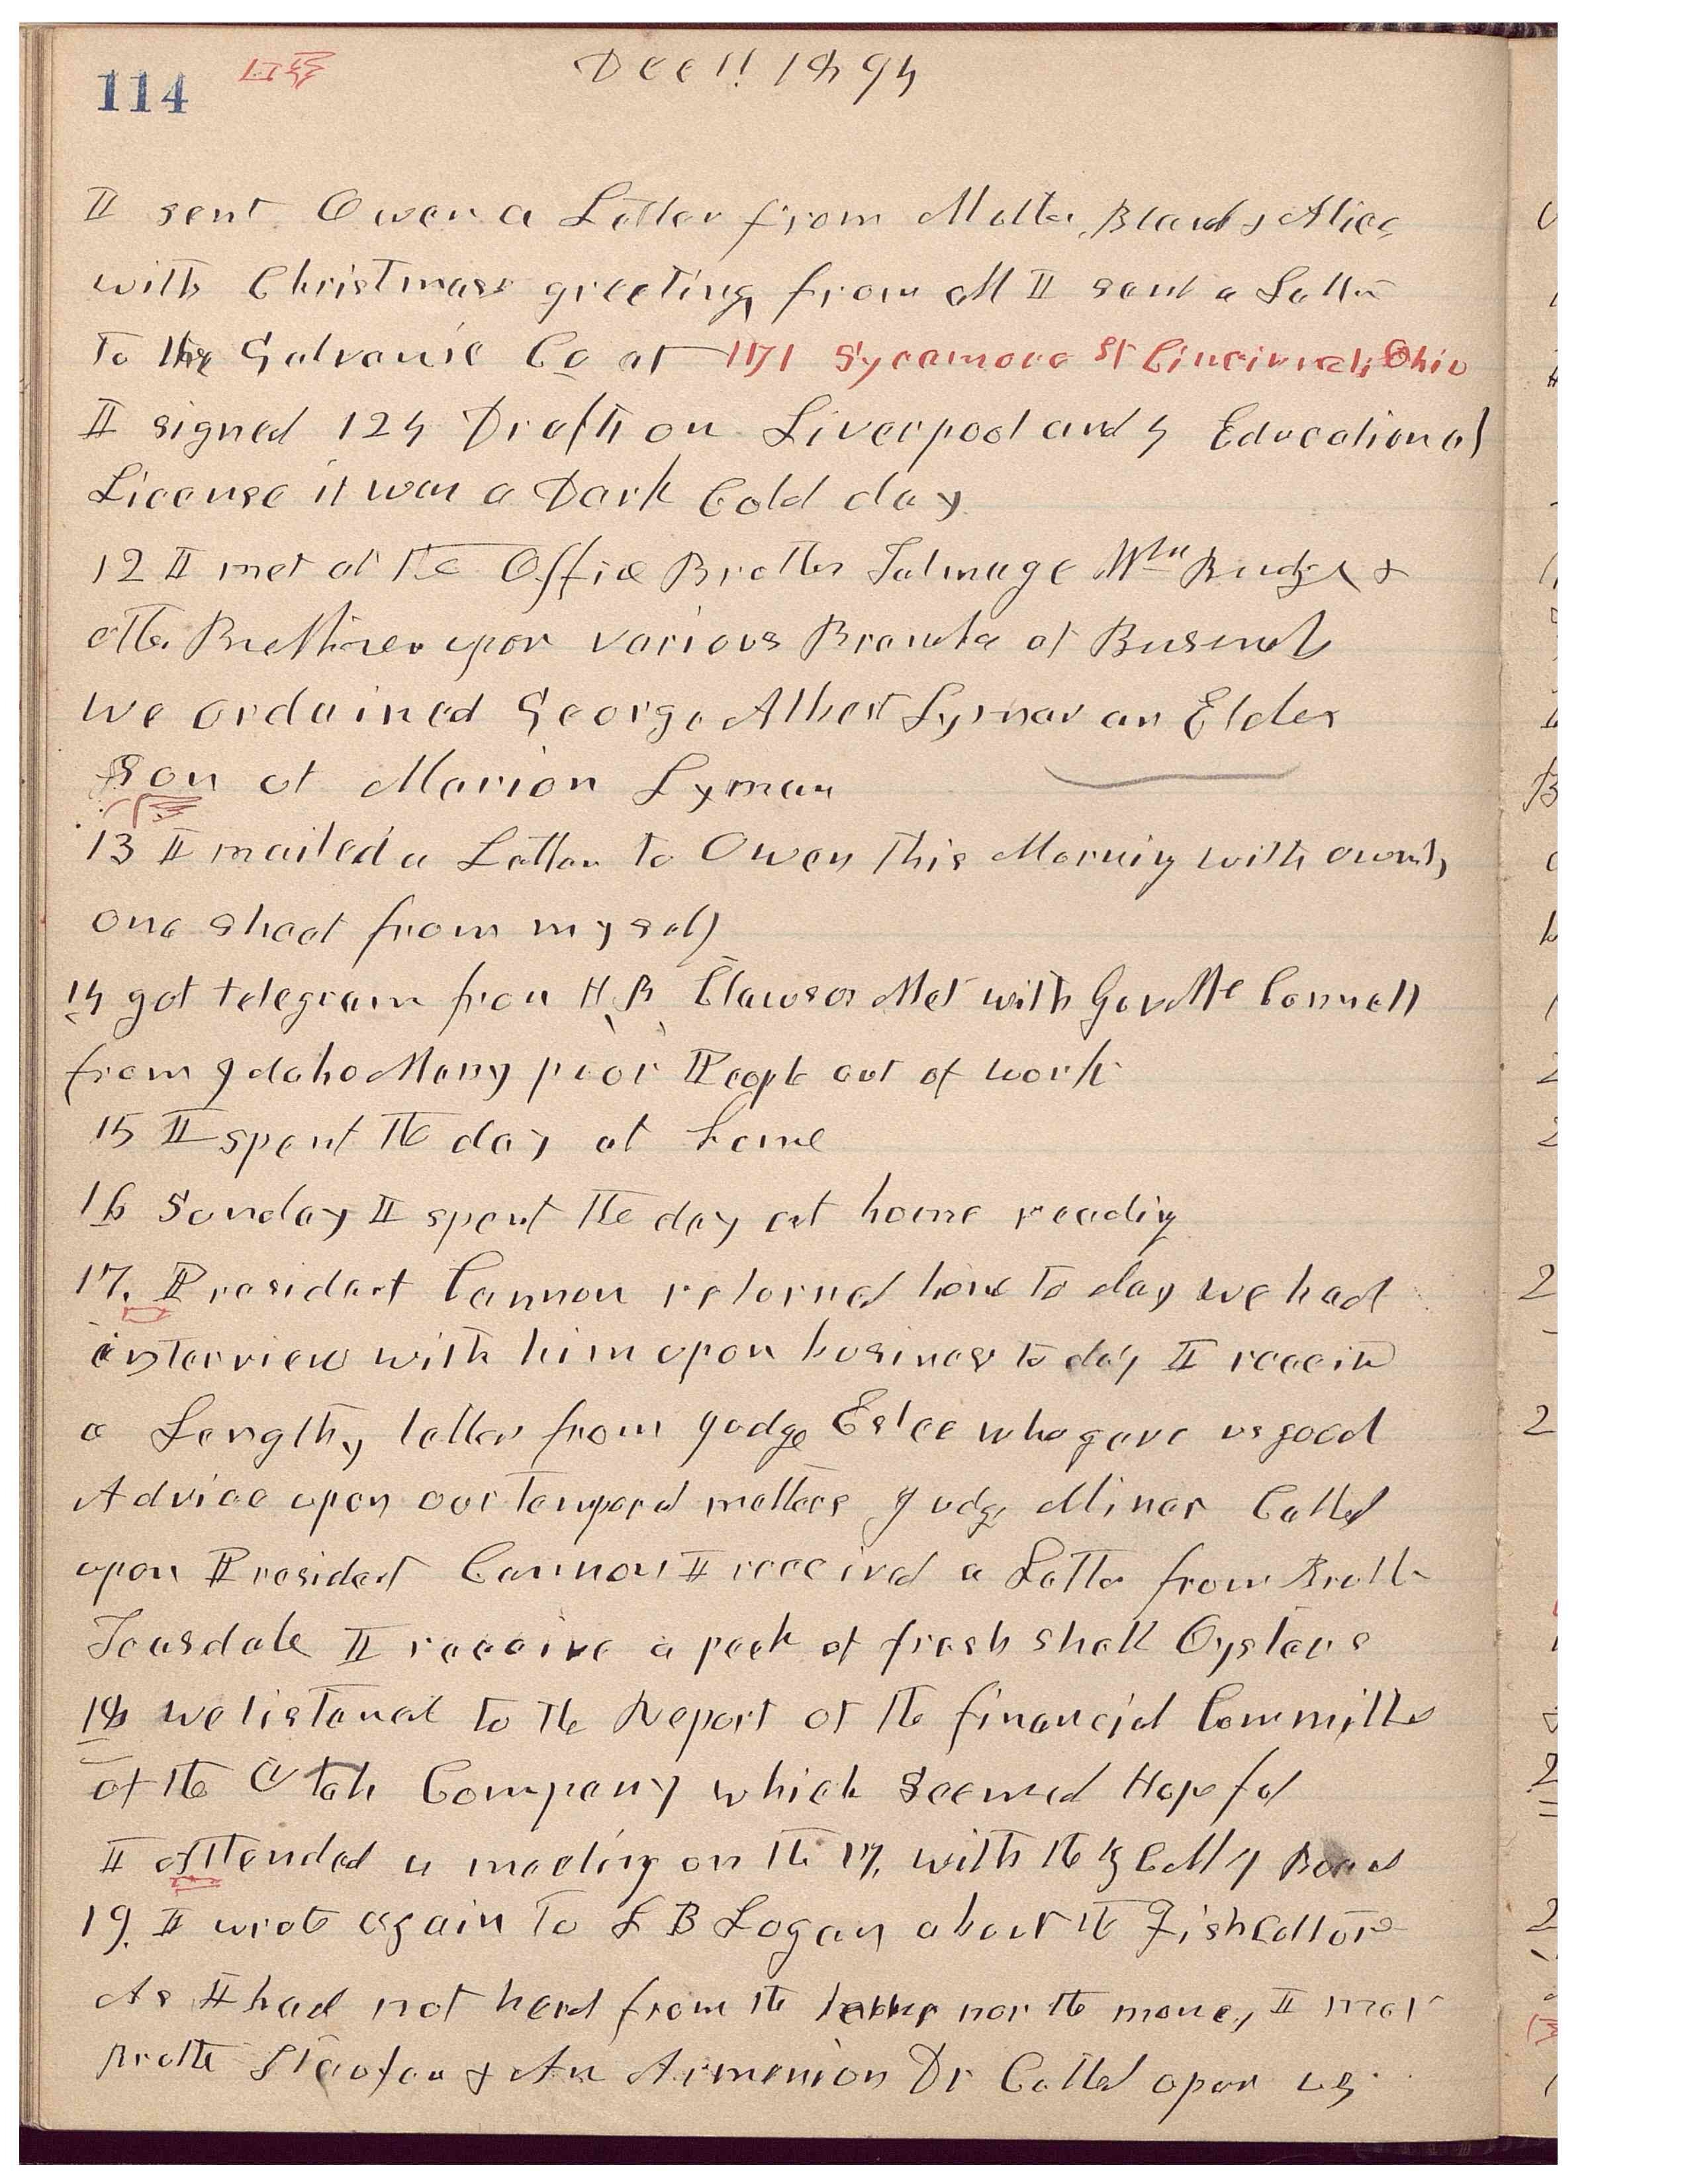 114 Dec 11 1894
I sent Owen a Letter from Mother, Blanch & Alice
with Christmass greeting from all I sent a Letter
to the Galvanic Co at 1171 Sycamore St Cincinnati, Ohio
I signed 124 Drafts on Liverpool and 4 Educational
License it was a Dark Cold day
12 I met at the Office Brother Talmage Wm Budge &
other Brethren upon various Branches of Business
we ordained George Albert Lyman an Elder
son of Marion Lyman
13 I mailed a Letter to Owen this Morning with
one sheet from myself
14 got telegram from H B Clawson Met with Gov Mc Connell
from Idaho Many poor People out of work
15 I spent the day at home
16 Sunday I spent the day at home reading
17. President Cannon returned home to day we had
interview with him upon business to day I receivd
a Lengthy letter from Judge Estee who gave us good
Advice upon our temporal matters Judge Miner Called
upon President Cannon I received a Letter from Brother
Teasdale I receive a peck of fresh shell Oysters
18 we listened to the Report of the financial Committee
of the Utah Company which seemed Hopeful
I attended a meeting on the 17, with the Z C M I Board
19. I wrote again to L B Logan about the Fish
As I had not herd from the letter nor the money I met
Brother & An Armenion Dr Called upon us